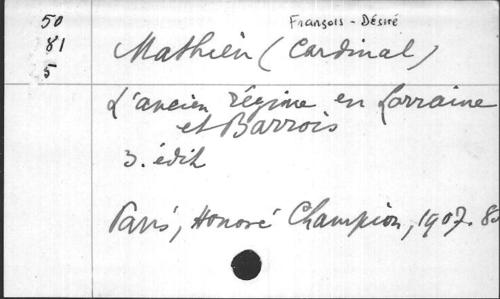 50
81
5
François - Désiré
Mathieu (Cardinal)
L'ancien régime en Lorraine
et Barrois
3. édit
Paris, Honoré Champion, 1907. 8o